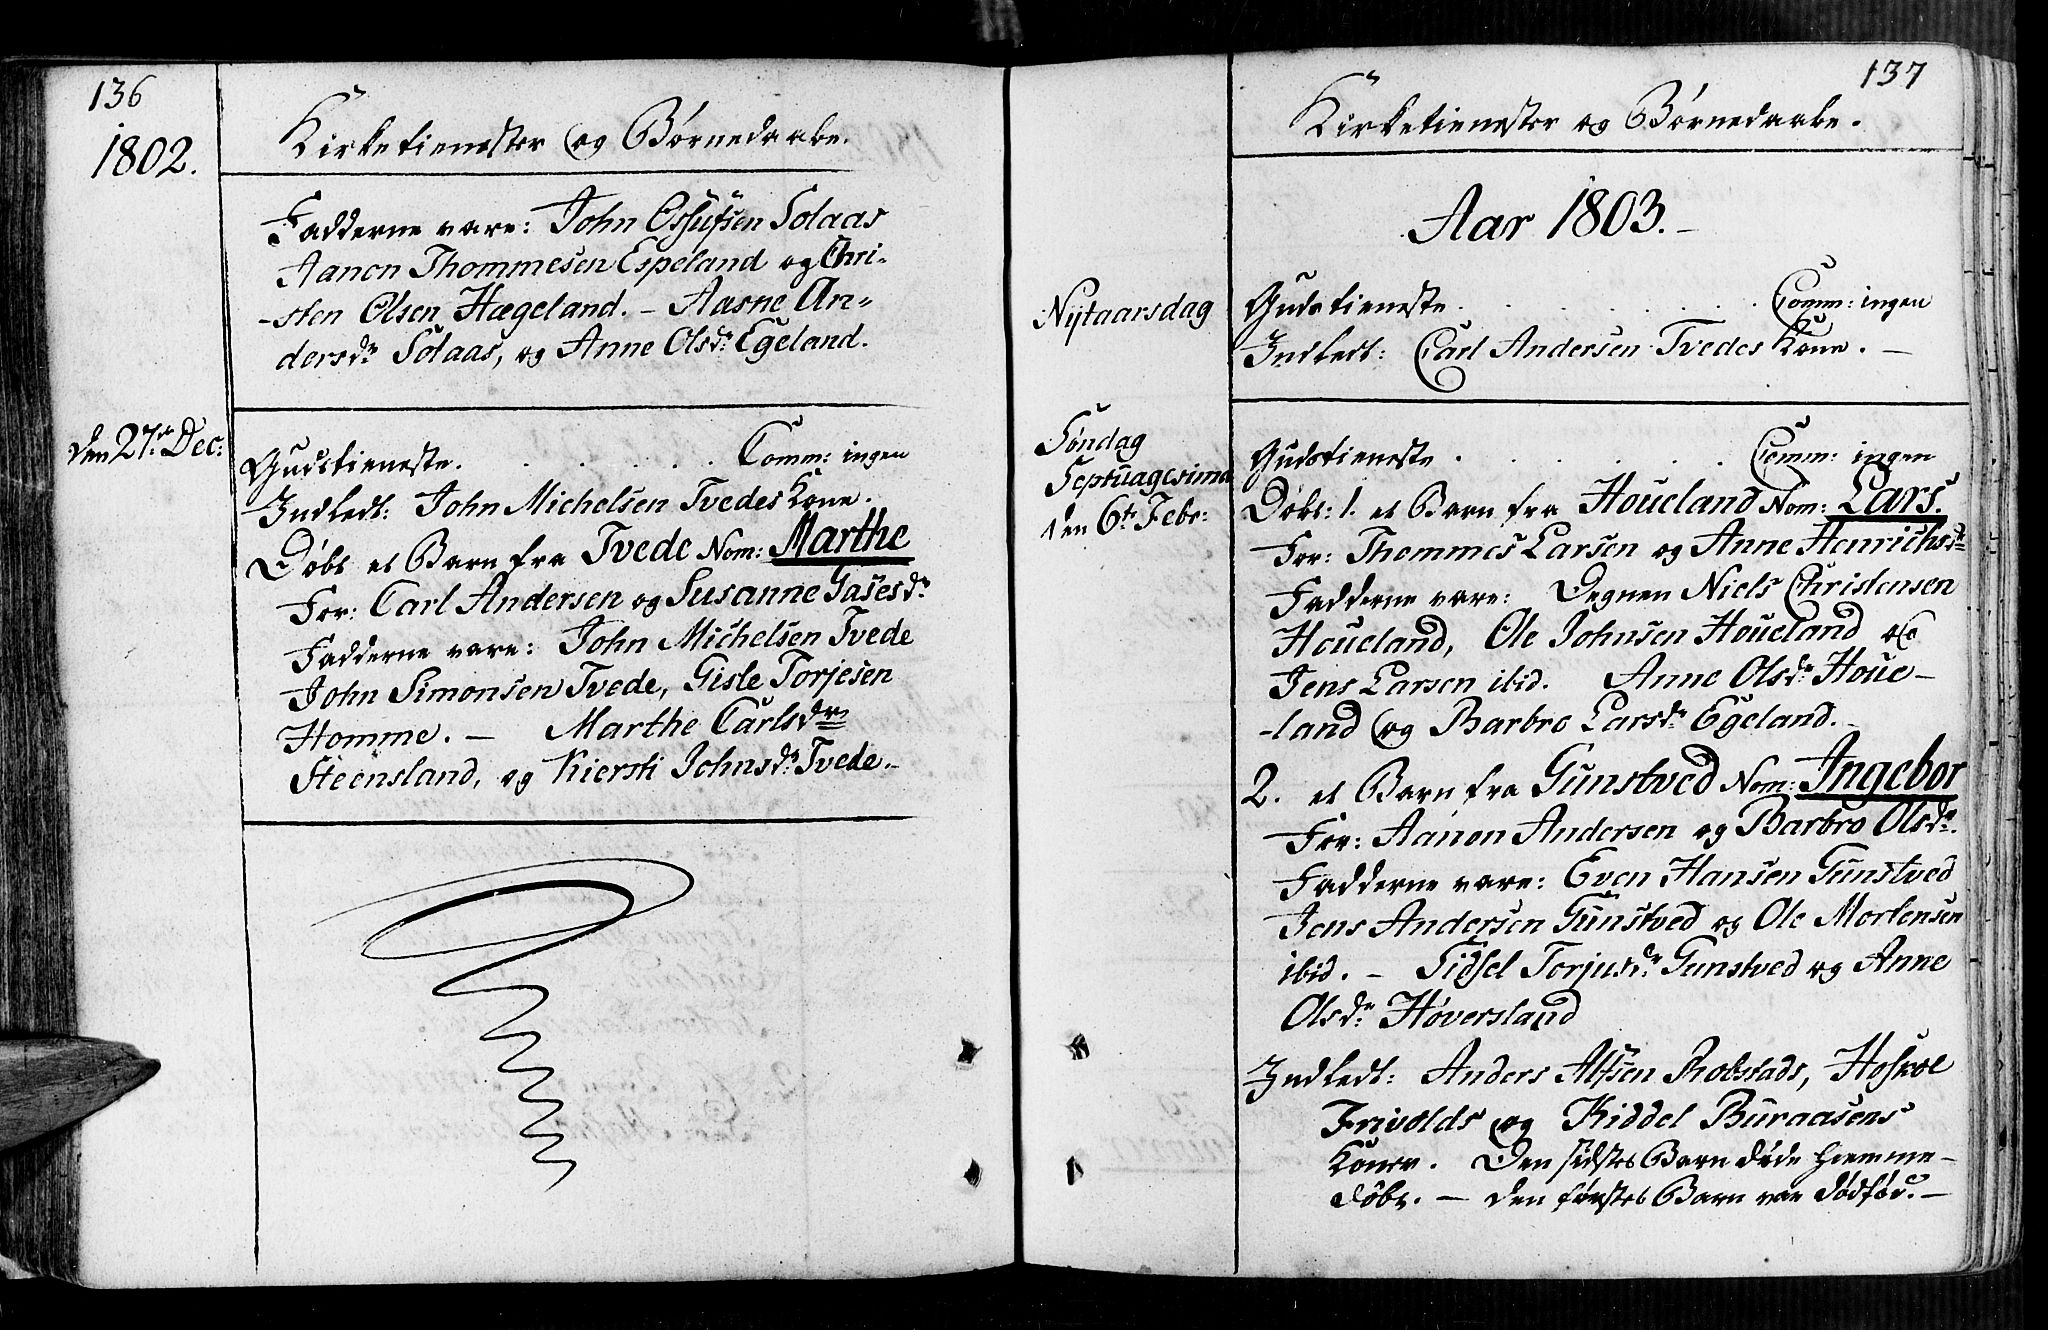 136
1802.
Kirketienester og Børnedaabe.
Fadderne vare: John Osufsen Solaas
Aanon Thommesen Espeland og Chri-
-sten Olsen Hægeland. - Aasne An-
dersdr. Solaas, og Anne Olsdr. Egeland.
Den 27de Dec:
Gudstieneste. . . . . . . Comm: ingen
Indledt: John Michelsen Tvedes Kone.
Døbt et Barn fra Tvede Nom: Marthe
For: Carl Andersen og Susanne Gasesdr.
Fadderne vare: John Michelsen Tvede
John Simonsen Tvede, Gisle Torjesen
Homme. - Marthe Carlsdr.
Steensland, og Kiersti Johnsdr. Tvede.-
137
Kirketienester og Børnedaabe.
Aar 1803.-
Nytaarsdag
Gudstieneste. . . . . . . Comm: ingen
Indledt: Carl Andersen Tvedes Kone. -
Søndag
Septuagesima
den 6te Febr:
Gudstieneste . . . . . . Comm: ingen
Døbt: 1. et Barn fra Houeland Nom: Lars.
For: Thommes Larsen og Anne Henrichsdr.
Fadderne vare: Degnen Niels Christensen
Houeland, Ole Johnsen Houeland og
Jens Larsen ibid. Anne Olsdr. Houe-
-land og Barbro Larsdr. Egeland.-
2. et Barn fra Gunstved Nom: Ingebor
For: Aanon Andersen og Barbro Olsdr.
Fadderne vare: Even Hansen Gunstved
Jens Andersen Gunstved og Ole Mortensen
ibid. - Sidsel Torjusdr. Gunstved og Anne
Olsdr. Høversland
Indledt: Anders Alfsen Robstads,
Frivolds og Kiddel Buraasens
Koner. Den sidstes Barn døde hiemme-
døbt. - den førstes Barn var dødfød. -